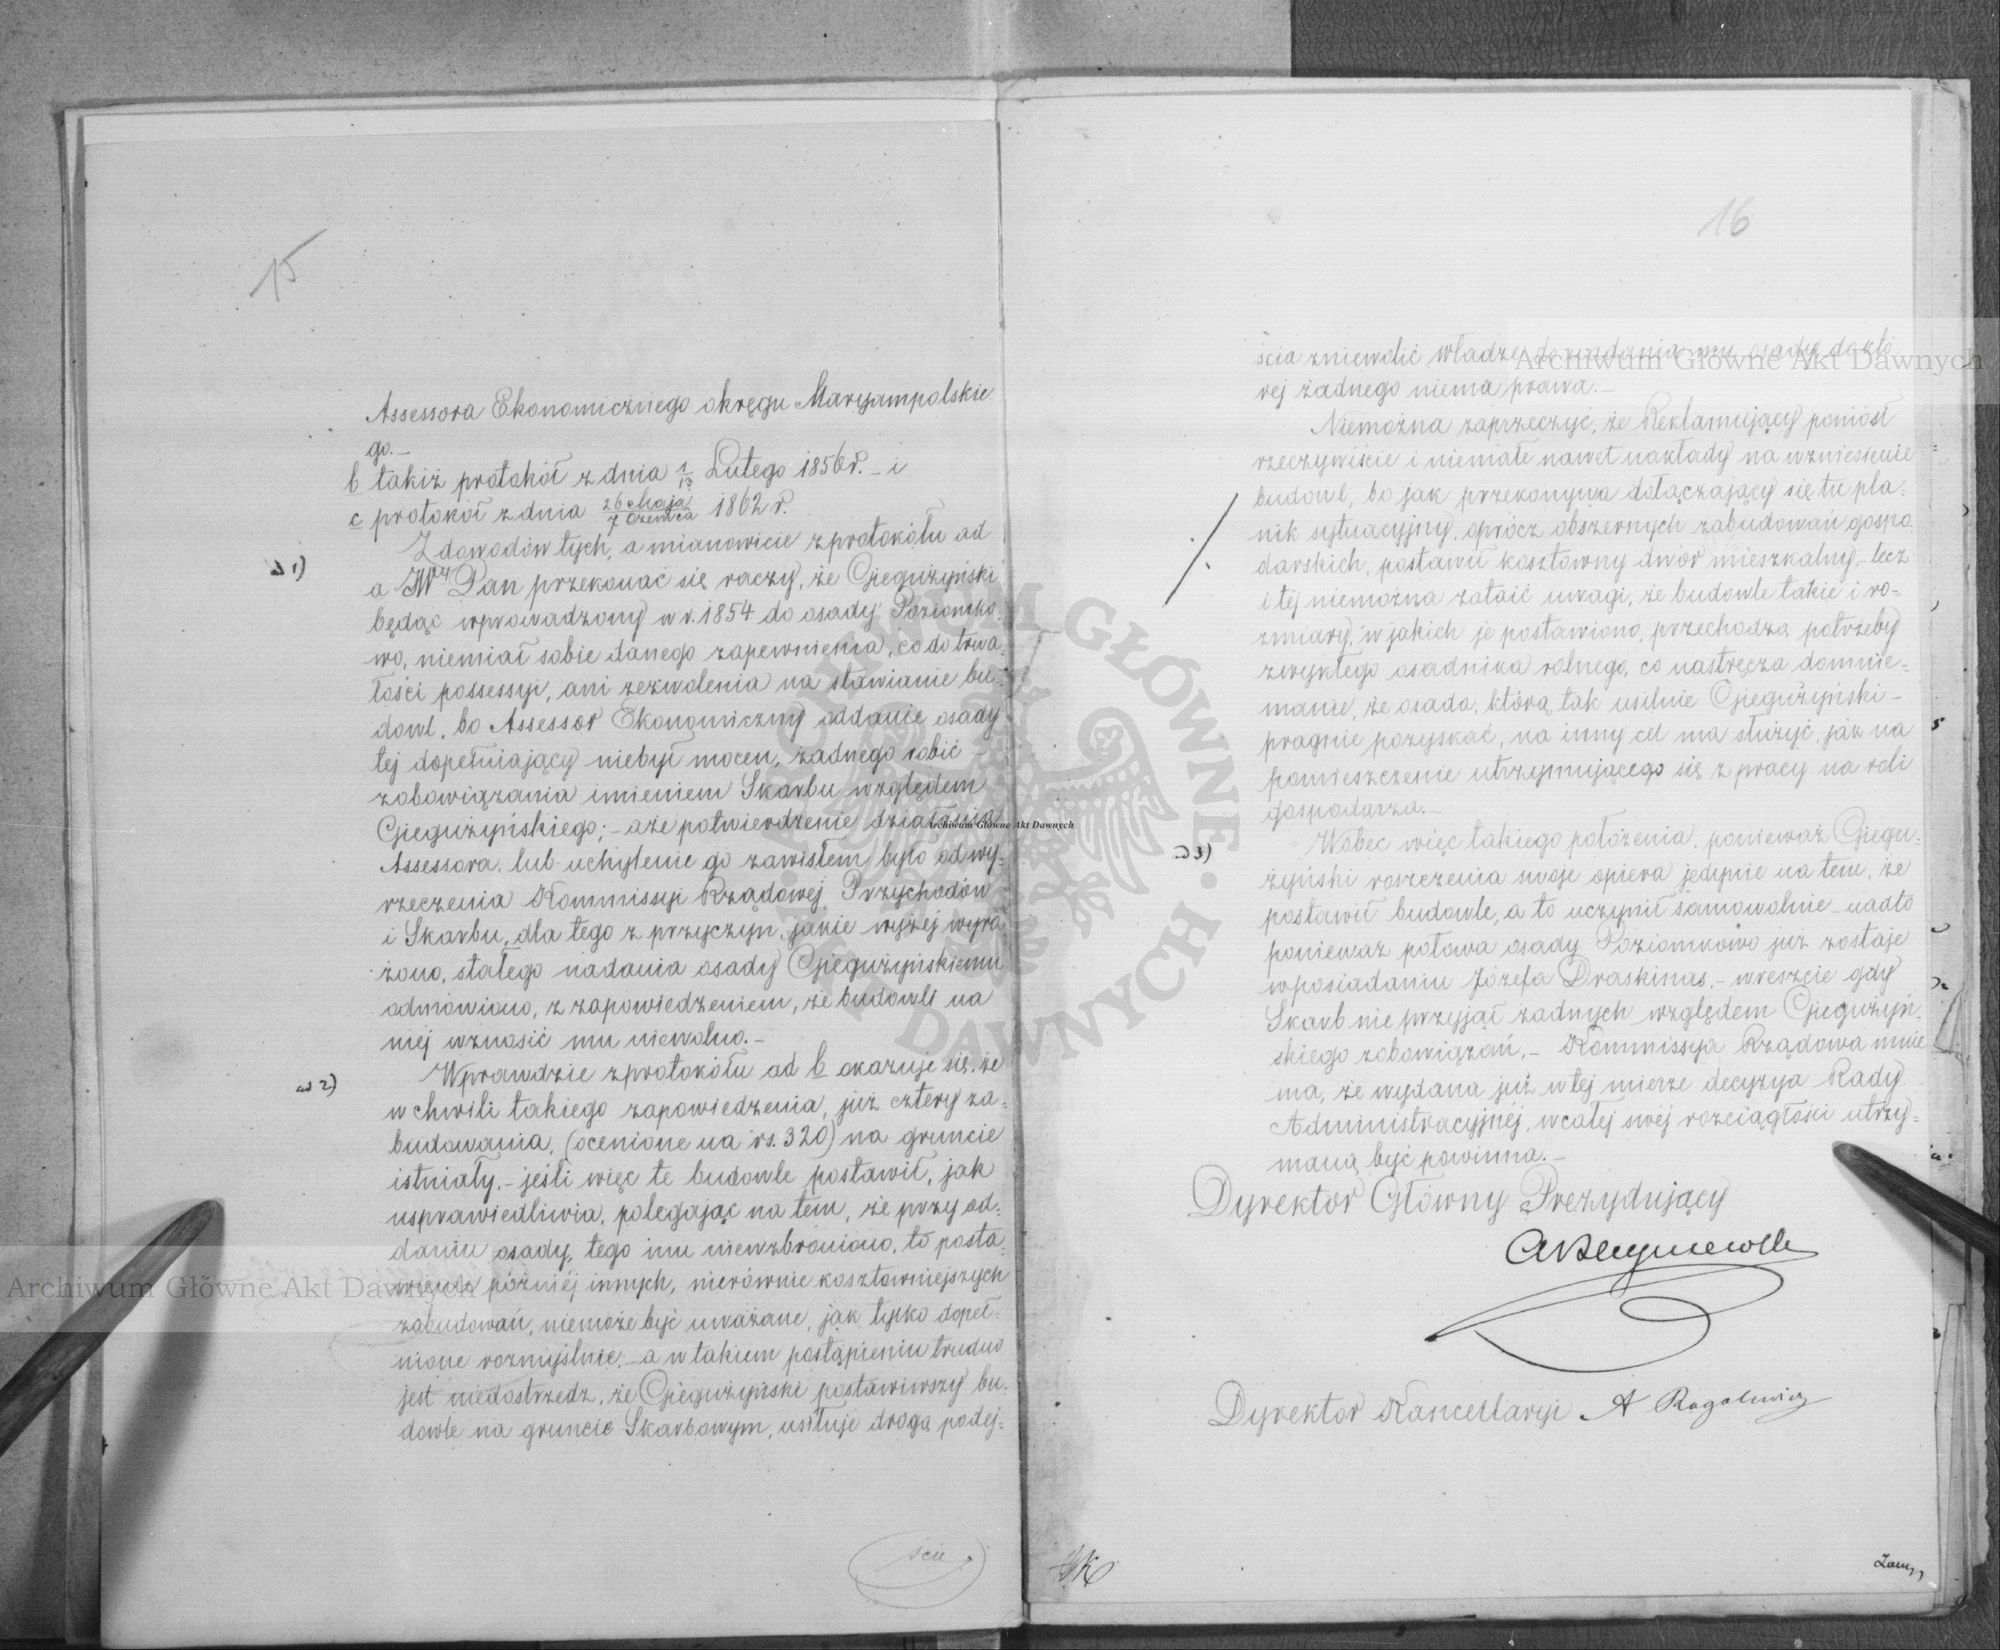 15
Assessora Ekonomicznego okręgu Maryampolskie
go._
b takiż protokół z dnia 1/13 Lutego 1856 r. _ i
c protokół z dnia 26 Maja/7 Czerwca 1862 r.
Z dowodów tych, a mianowicie z protokółu ad
ad 1)
a JW Pan przekonać się raczy, że Giegużyński
będąc wprowadzony w r. 1854 do osady Poziomko-
wo, niemiał sobie danego zapewnienia, co do trwa-
łości possessyi, ani zezwolenia na stawianie bu-
dowl, bo Assessor Ekonomiczny oddanie osady
tej dopełniający niebył mocen, żadnego robić
zobowiązania imieniem Skarbu względem
Giegużyńskiego; – a że potwierdzenie działania
Assessora, lub uchylenie go zawisłem było od wy-
rzeczenia Kommissyi Rządowej Przychodów
i Skarbu, dla tego z przyczyn, jakie wyżej wyra-
żono, stałego nadania osady Giegużyńskiemu
odmówiono, z zapowiedzeniem, że budowli na
niej wznosić mu niewolno._
ad 2)
Wprawdzie z protokółu ad b okazuje się, że
w chwili takiego zapowiedzenia, już cztery za-
budowania, (ocenione na rs. 320) na gruncie
istniały, – jeśli więc te budowle postawił, jak
usprawiedliwia, polegając na tem, że przy od-
daniu osady, tego mu niewzbroniono, to posta-
wienie później innych, nierównie kosztowniejszych
zabudowań, niemoże być uważane, jak tylko dopeł-
nione rozmyślnie, – a w takiem postąpieniu trudno
jest niedostrzedz, że Giegużyński postawiwszy bu-
dowle na gruncie Skarbowym, usiłuje drogą podej-
ście
16
ścia zniewolić władzę do nadania mu osady, do któ-
rej żadnego niema prawa._
Niemożna zaprzeczyć, że Reklamujący poniósł
rzeczywiście i niemałe nawet nakłady na wzniesienie
budowl, bo jak przekonywa dołączający się tu pla-
nik sytuacyjny, oprócz obszernych zabudowań gospo-
darskich, postawił kosztowny dwór mieszkalny, lecz
i tej niemożna zataić uwagi, że budowle takie i ro-
zmiary, w jakich je postawiono, przechodzą potrzeby
zwykłego osadnika rolnego, co nastręcza domnie-
manie, że osada, którą tak usilnie Giegużyński –
pragnie pozyskać, na inny cel ma służyć, jak na
pomieszczenie utrzymującego się z pracy na roli
gospodarza._
ad 3)
Wobec więc takiego położenia, ponieważ Giegu-
żyński roszczenia swoje opiera jedynie na tem, że
postawił budowle, a to uczynił samowolnie – nadto
ponieważ połowa osady Poziomkowo już zostaje
w posiadaniu Józefa Draskinas, – wreszcie gdy
Skarb nie przyjął żadnych względem Giegużyń-
skiego zobowiązań, – Kommissya Rządowa mnie-
ma, że wydana już w tej mierze decyzya Rady
Administracyjnej, w całej swej rozciągłości utrzy-
maną być powinna._
Dyrektor Główny Prezydujący
Dyrektor Kancellaryi A Rogolewicz
Archiwum Główne Akt Dawnych
Archiwum Główne Akt Dawnych
Archiwum Główne Akt Dawnych
ARCHIWUM GŁÓWNE · AKT DAWNYCH ·